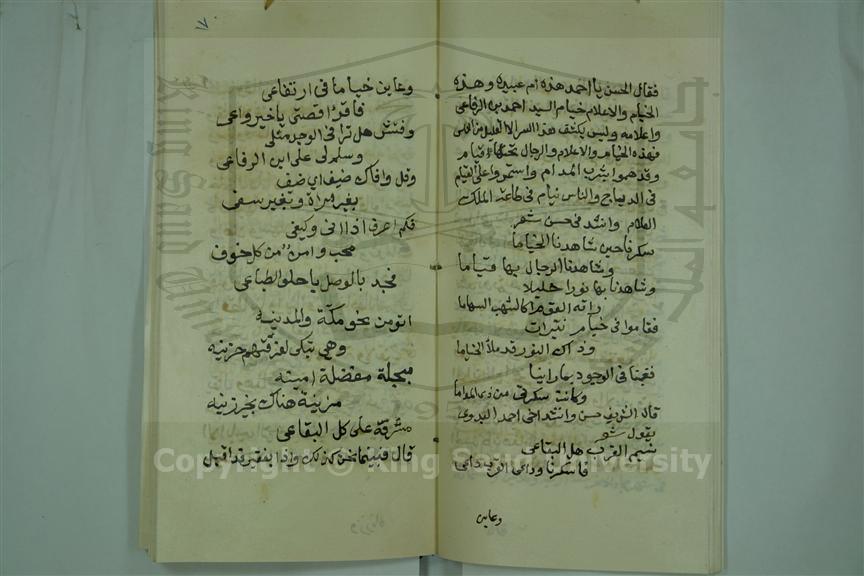 فقال الحسن يا احمد هذه أم عبيده وهذه
الخيام والاعلام خيام السيد احمد بن الرفاعى
واعلامه وليس يكشف هذا السر الا القليل من الناس
فهذه الخيام والاعلام والرجال تحتها قيام
وقد هموا شرب المدام واستمروا على القيام
فى الدياجى والناس نيام فى طاعة الملك
العلام وانشد فى حسن شعر
سكرنا حين شاهدنا الخياما
وشاهدنا الرجال بها قياما
وشاهدنا بها نورا جليلا
كالشهب السهاما
فقاموا فى خيام نيرات
وذاك النور قد ملأ الخياما
فهمنا فى الوجود بما راينا
وكانت سكرتى من ذى المداما
قال الشريف حسن وانشد اخى احمد البدوى
يقول شعر
نسيم القرب هل البقاعى
فاسكرنا وداعى القرب داعى
وعاين
٧
وعاين خياما فى ارتفاعى
فاقرا قصتى يا خير واعى
وفتش هل ترا فى الوجد مثلى
وسلم لى على ابن الرفاعى
وقل وافاك ضيف اى ضيف
بغير مراة وبغير سيف
فكم اعرف اذا انى وكيفى
محب وامن من كل خوف
فجد بالوصل يا حلو الطباعى
اتو من نحو مكة والمدينه
وهى تبكى لفرقتهم حزينه
مبجلة مفضلة امينه
مزينة هناك بخير زينه
مشرفة على كل البقاعى
قال فبينما نحن كذلك واذا بفقير قد اقبل
Copyright © King Saud University
King Saud University
جامعة الملك سعود